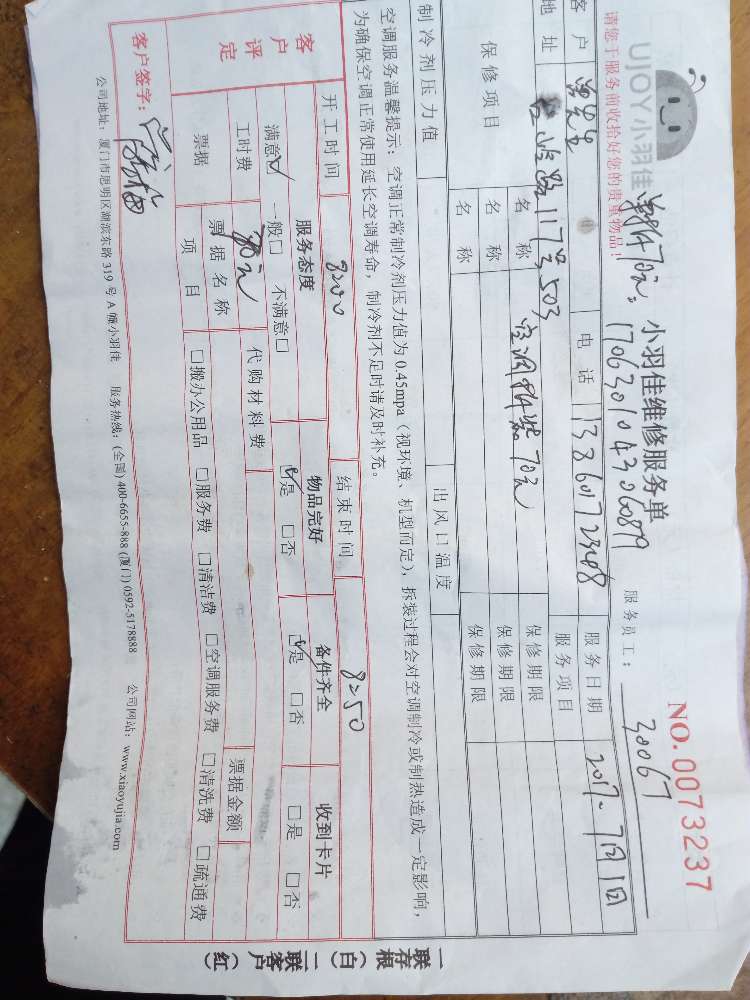 UJOY小羽佳
小羽佳维修服务单
NO. 0073237
70元
服务员工： 30067
请您于服务前收拾好您的贵重物品！
客户 电话 服务日期 2017~7月1日
地址 117号503 服务项目
保修项目 名称 空调 70元 保修期限
名称 保修期限
名称 保修期限
制冷剂压力值 出风口温度
空调服务温馨提示：空调正常制冷剂压力值为 0.45mpa（视环境、机型而定），拆装过程会对空调制冷或制热造成一定影响，
为确保空调正常使用延长空调寿命，制冷剂不足时请及时补充。
开工时间 8:00 结束时间 8:50
客户评定 服务态度 物品完好 备件齐全 收到卡片
满意☑ 一般□ 不满意□ ☑是 □否 ☑是 □否 □是 □否
工时费 代购材料费 票据金额
票据 票据名称
项目 □搬办公用品 □服务费 □清洁费 □空调服务费 □清洗费 □疏通费
客户签字：
公司地址：厦门市思明区湖滨东路 319 号 A 幢小羽佳 服务热线：(全国) 400-6655-888 (厦门) 0592-5178888 公司网站：www.xiaoyujia.com
一联存根（白）二联客户（红）